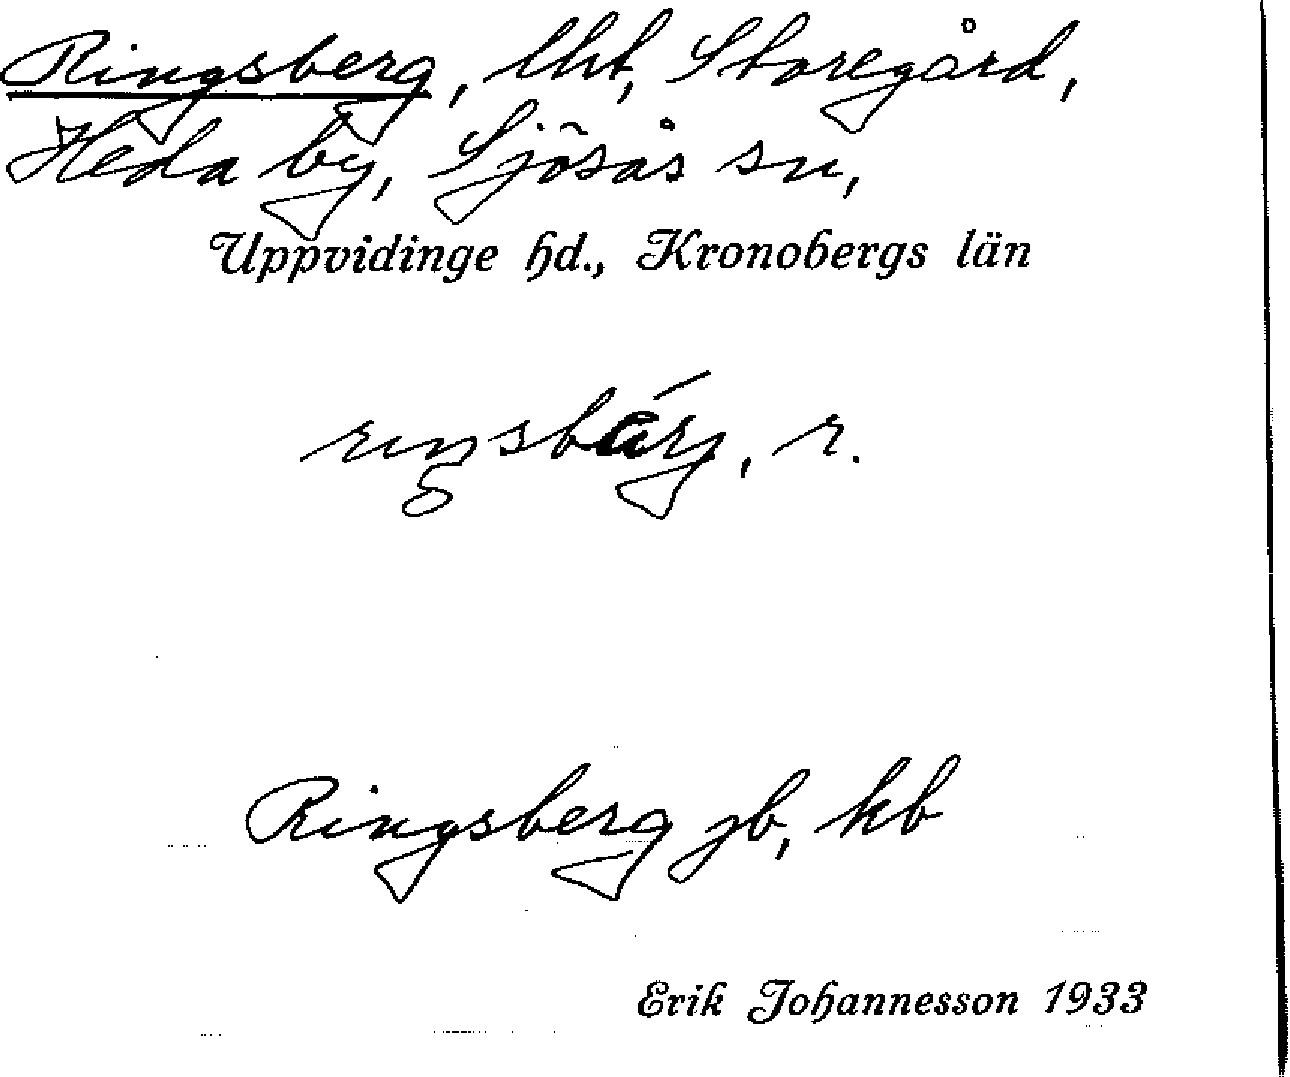 Ringsberg, lht, Storegård,
Heda by, Sjösås sn,
Uppvidinge hd., Kronobergs län
r.
Ringsberg jb, kb
Erik Johannesson 1933